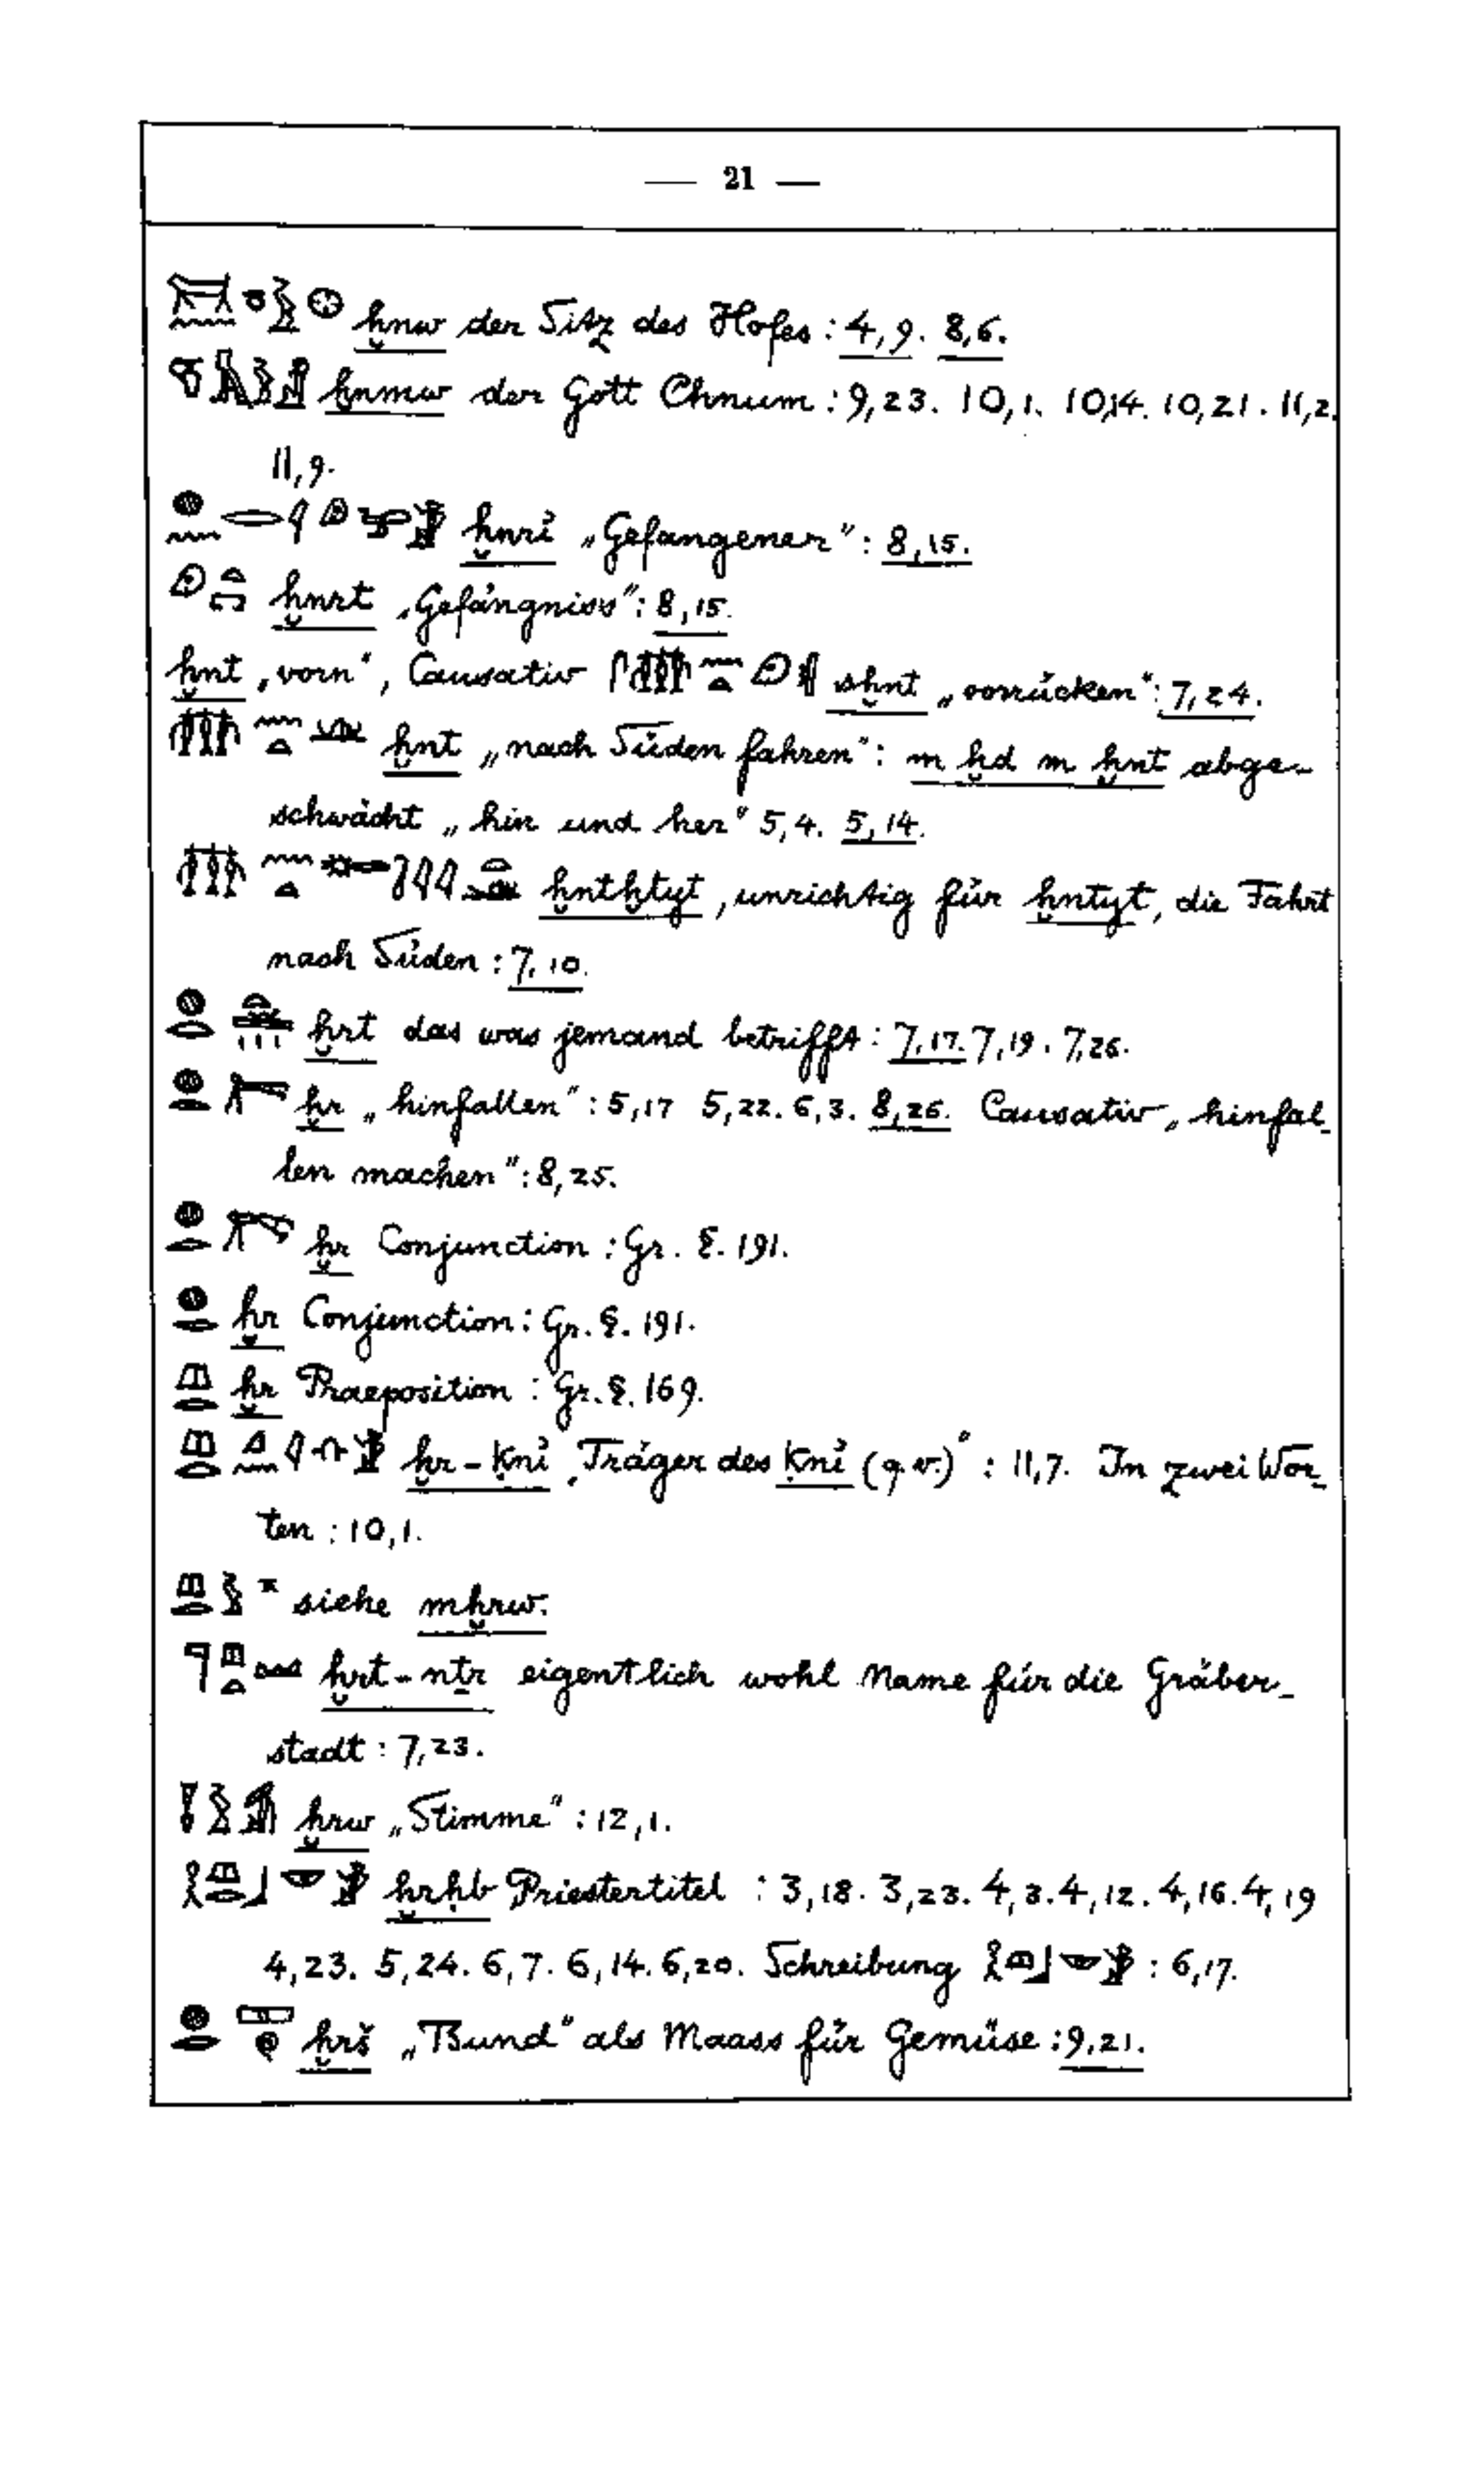 — 21 —
ḫnw der Sitz des Hofes : 4,9. 8,6.
ḫnmw der Gott Chnum : 9,23. 10,1. 10,14. 10,21. 11,2.
11,9.
ḫnri̓ „Gefangener“ : 8,15.
ḫnrt „Gefängniss“ : 8,15.
ḫnt „vorn“, Causativ sḫnt „vorrücken“ : 7,24.
ḫnt „nach Süden fahren“ : m ḫd m ḫnt abge-
schwächt „hin und her“ 5,4. 5,14.
ḫntḫtyt, unrichtig für ḫntyt, die Fahrt
nach Süden : 7,10.
ḫrt das was jemand betrifft : 7,17. 7,19. 7,26.
ḫr „hinfallen“ : 5,17 5,22. 6,3. 8,26. Causativ „hinfal-
len machen“ : 8,25.
ḫr Conjunction : Gr. §. 191.
ḫr Conjunction : Gr. §. 191.
ḫr Praeposition : Gr. §. 169.
ḫr-ḳni̓ „Träger des ḳni̓ (q.v.)“ : 11,7. In zwei Wor-
ten : 10,1.
siehe mḫrw.
ḫrt-nṯr eigentlich wohl Name für die Gräber-
stadt : 7,23.
ḫrw „Stimme“ : 12,1.
ḫrḥb Priestertitel : 3,18. 3,23. 4,3. 4,12. 4,16. 4,19
4,23. 5,24. 6,7. 6,14. 6,20. Schreibung : 6,17.
ḫrš „Bund“ als Maass für Gemüse : 9,21.